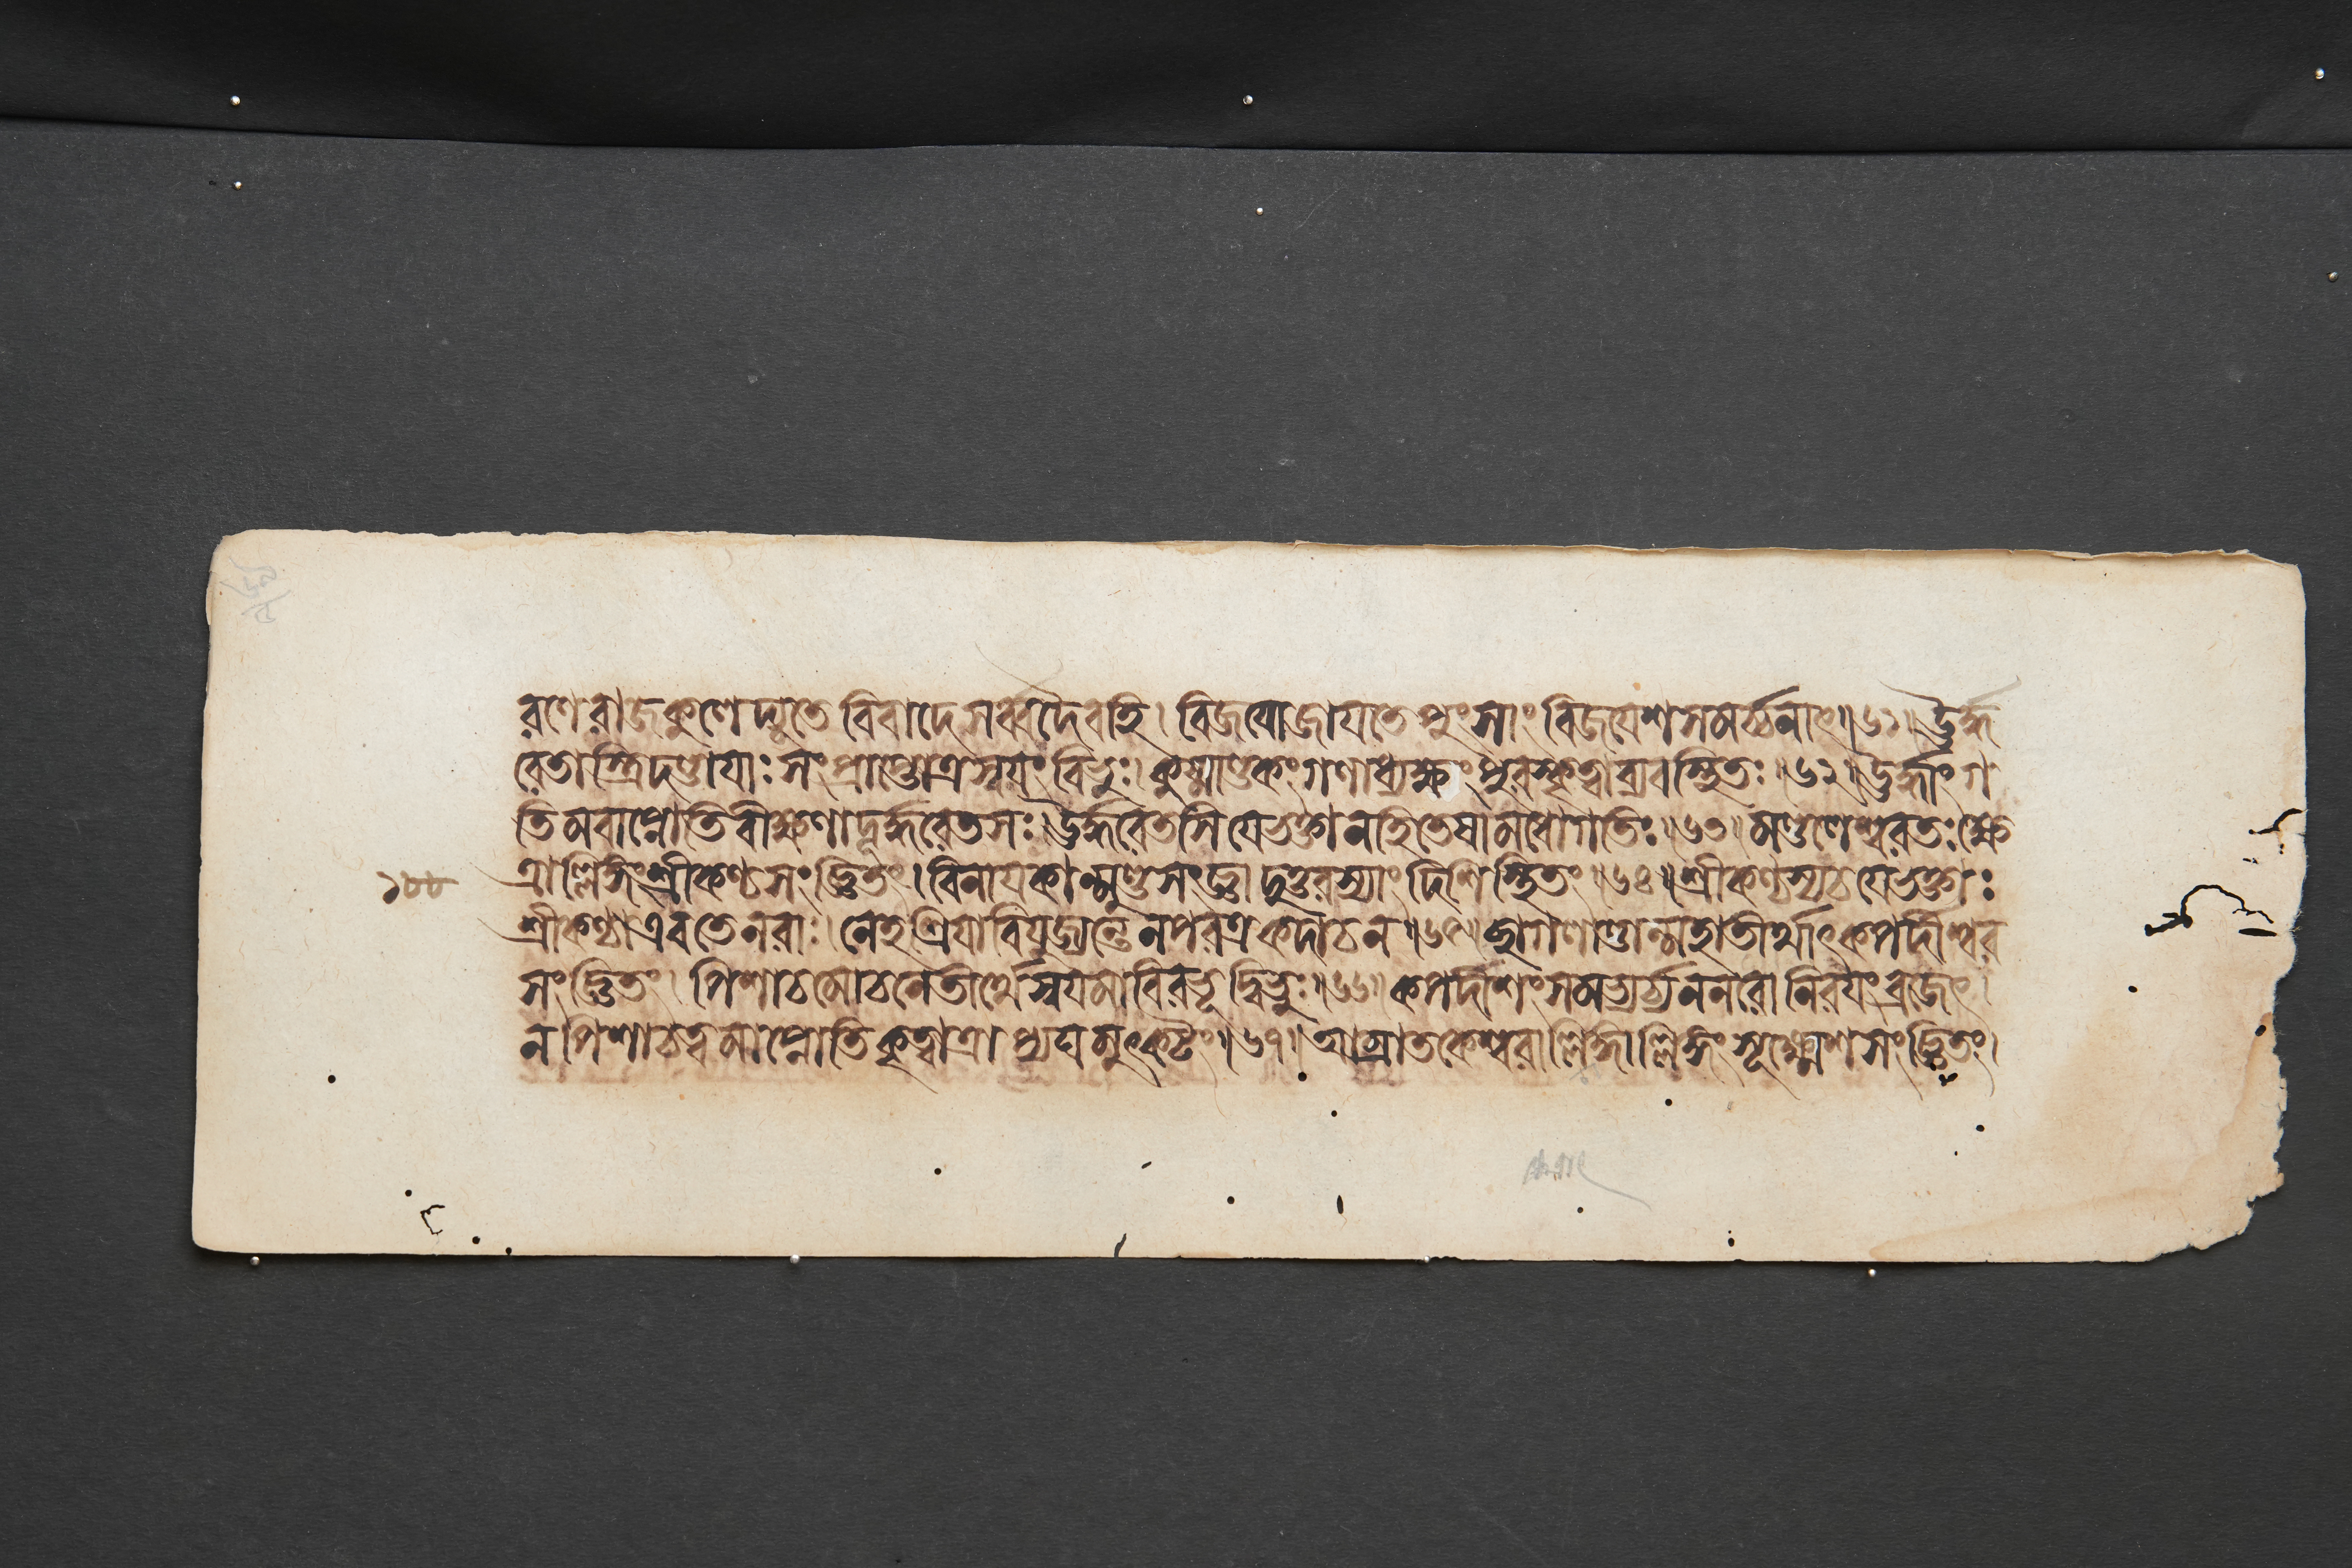 রণে রাজকুলে দ্যুতে বিবাদে সর্ব্বদৈবহি। বিজযো জাযতে পুংসাং বিজযেশসমর্চ্চনাৎ॥৬১॥ ঊর্দ্ধ
রেতাস্ত্রিদণ্ডাযাঃ সংপ্রাপ্তোত্র স্বযং বিভুঃ। কুষ্মাণ্ডকং গণাধ্যক্ষং পুরস্কৃত্বা ব্যবস্থিতঃ॥৬২॥ ঊর্দ্ধাং গ
তিমবাপ্নোতি বীক্ষণাদূর্দ্ধরেতসঃ। ঊর্দ্ধরেতসি যে ভক্তা ন হি তেষামধোগতিঃ॥৬৩॥ মণ্ডলেশ্বরতঃ ক্ষে
ত্রাল্লিঙ্গং শ্রীকণ্ঠসংজ্ঞিতং। বিনাযকান্মুণ্ডসংজ্ঞাদুত্তরস্যাং দিশি স্থিতং॥৬৪॥ শ্রীকণ্ঠস্য চ যে ভক্তাঃ
শ্রীকণ্ঠা এব তে নরাঃ। নেহ শ্রিযা বিযুজ্যন্তে ন পরত্র কদাচন॥৬৫॥ ছাগলাণ্ডান্মহাতীর্থাৎ কপর্দীশ্বর
সংজ্ঞিতং। পিশাচমোচনে তীর্থে স্বযমাবিরভূদ্বিভুঃ॥৬৬॥ কপর্দীশং সমভ্যর্চ্য ন নরো নিরযং ব্রজেৎ।
ন পিশাচত্বমাপ্নোতি কৃত্বাত্রাপ্যঘমুৎকটং॥৬৭॥ আম্রাতকেশ্বরাল্লিঙ্গাল্লিঙ্গং সূক্ষ্মেশসংজ্ঞিতং।
১৮৮